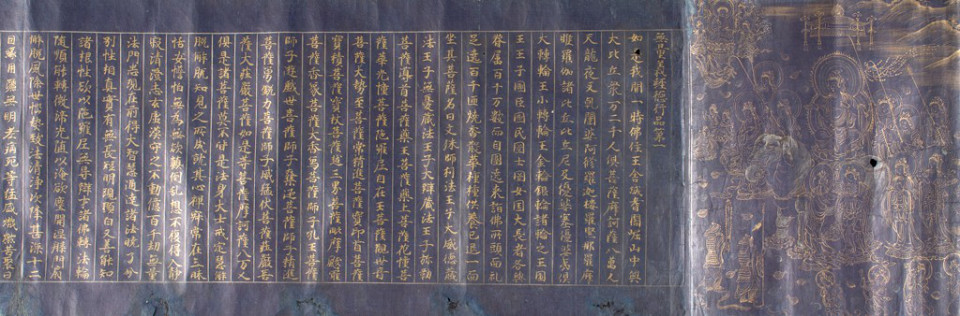 無量義經德行品第一
如是我聞一時佛住王舍城耆闍崛山中與
大比丘眾万二千人俱菩薩摩訶薩八萬人
天龍夜叉乾闥婆阿修羅迦樓羅緊那羅摩
睺羅伽諸比丘比丘尼及優婆塞優婆夷俱
大轉輪王小轉輪王金輪銀輪諸輪之王國
王王子國臣國民國士國女國大長者各與
眷屬百千万數而自圍遶來詣佛所頭面礼
足遶百千匝燒香散華種種供養已退一面
坐其菩薩名曰文殊師利法王子大威德藏
法王子無憂藏法王子大辯藏法王子彌勒
菩薩導首菩薩藥王菩薩藥上菩薩花幢菩
薩花光幢菩薩陀羅尼自在王菩薩觀世音
菩薩大勢至菩薩常精進菩薩寶印首菩薩
寶積菩薩寶杖菩薩越三界菩薩毗摩跋羅
菩薩香象菩薩大香象菩薩師子吼王菩薩
師子遊戲世菩薩師子奮迅菩薩師子精進
菩薩勇銳力菩薩師子威猛伏菩薩莊嚴菩
薩大莊嚴菩薩如是等菩薩摩訶薩八万人
俱是諸菩薩莫不皆是法身大士戒定慧解
脫解脫知見之所成就其心禪寂常在三昧
恬安憺怕無為無欲顛倒亂想不復得入靜
寂清澄志玄虛漠守之不動億百千劫無量
法門悉現在前得大智慧通達諸法曉了分
別性相真實有無長短明現顯白又善能知
諸根性欲以陀羅尼無导辯才諸佛轉法輪
隨順能轉微渧先墮以淹欲塵開涅槃門扇
解脫風除世惱熱致法清涼次降甚深十二
因緣用灑無明老病死等猛盛熾然苦聚日